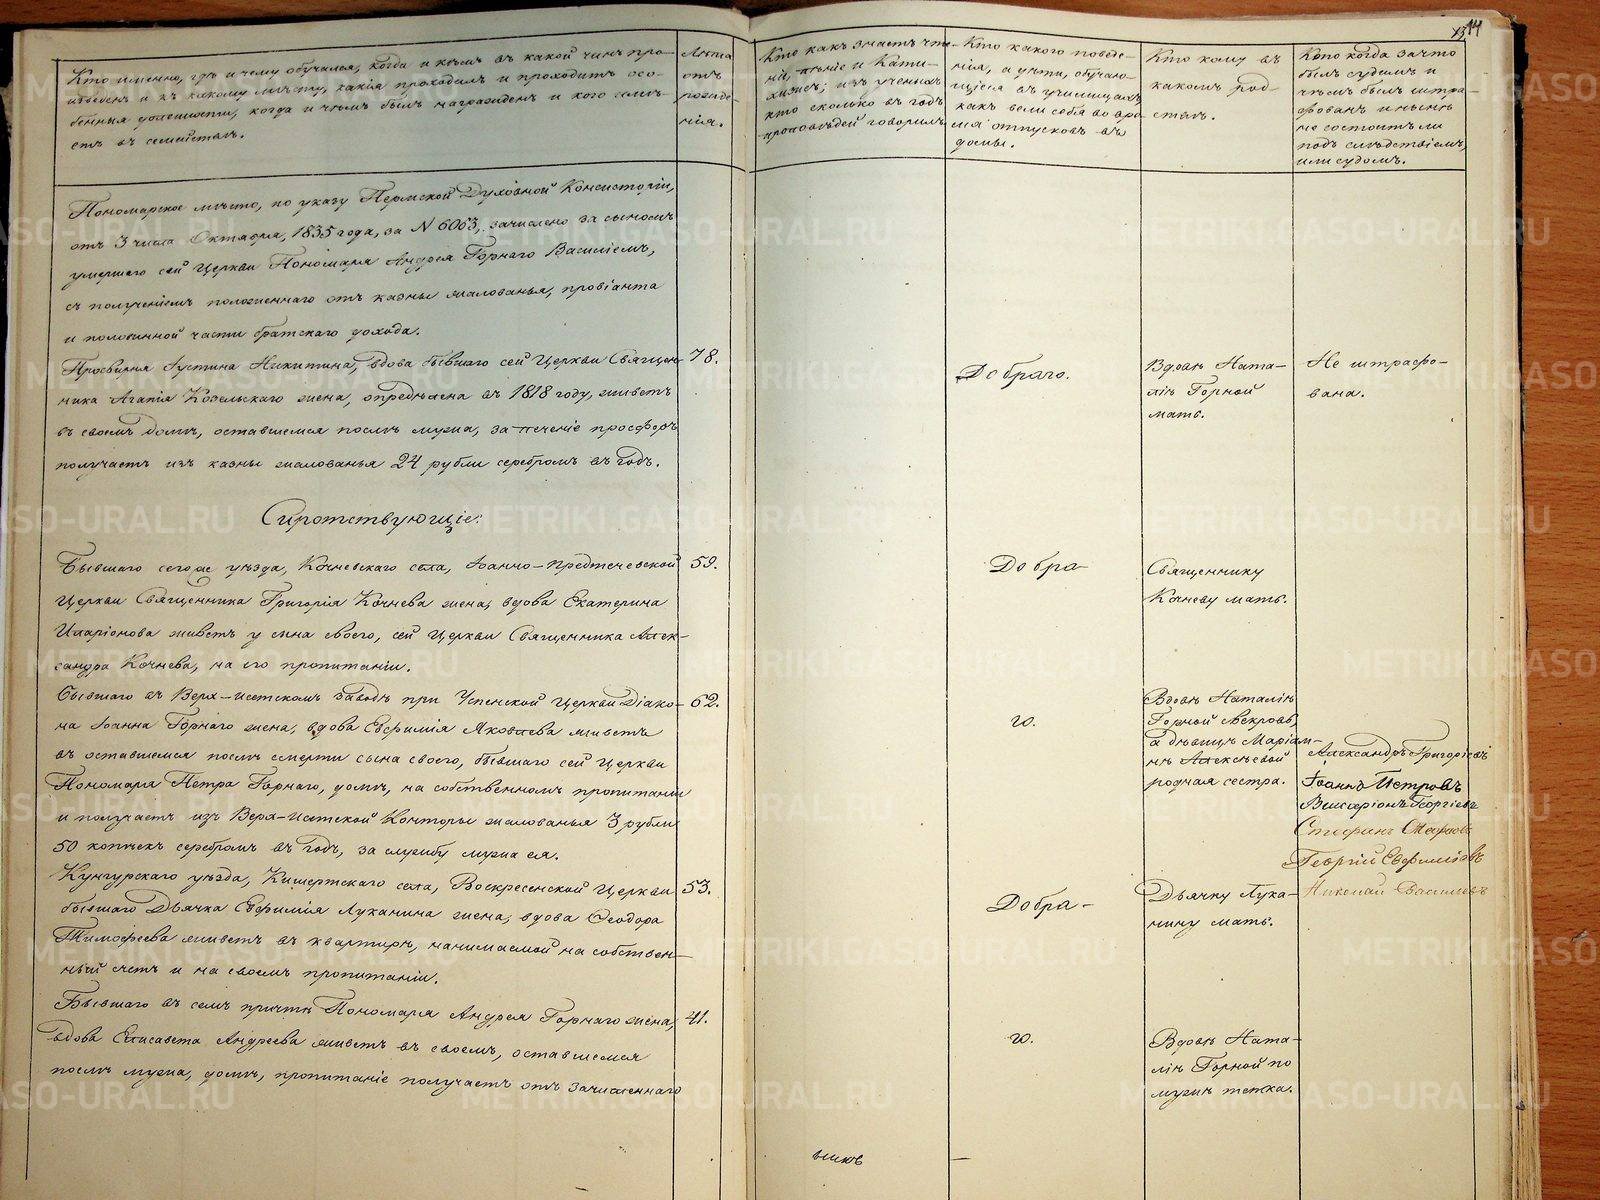 14
Кто именно, гдѣ и чему обучался, когда и кѣмъ въ какой чинъ про-
изведенъ и къ какому мѣсту, какія проходилъ и проходитъ осо-
бенныя должности, когда и чѣмъ былъ награжденъ и кого имѣ-
етъ въ семействѣ.
Лѣта
отъ
рожде-
нія.
Кто какъ знаетъ чте-
ніе, пѣніе и Кати-
хизисъ; изъ ученыхъ
кто сколько въ годъ
проповѣдей говорилъ
Кто какого поведе-
нія, а дѣти, обучаю-
щіеся въ училищахъ
какъ вели себя во вре-
мя отпусковъ въ
домы.
Кто кому въ
какомъ род-
ствѣ.
Кто когда за что
былъ судимъ и
чѣмъ былъ штра-
фованъ и нынѣ
не состоитъ ли
подъ слѣдствіемъ,
или судомъ.
Пономарское мѣсто, по указу Пермской Духовной Консисторіи,
отъ 3 числа Октября, 1835 года, за N 6063, зачислено за сыномъ
умершаго сей Церкви Пономаря Андрея Горнаго Василіемъ,
съ полученіемъ положеннаго отъ казны жалованья, провіанта
и половинной части братскаго дохода.
Просвирня Іустина Никитина, вдова бывшаго сей Церкви Священ-
ника Агапія Козельскаго жена, опредѣлена въ 1818 году, живетъ
въ своемъ домѣ, оставшемся послѣ мужа, за печеніе просфоръ
получаетъ изъ казны жалованья 24 рубли серебромъ въ годъ.
78.
Добраго.
Вдовѣ Ната-
ліи Горной
мать.
Не штрафо-
вана.
Сиротствующіе:
Бывшаго сего же уѣзда, Кочневскаго села, Іоанно-Предтечевской
Церкви Священника Григорія Кочнева жена, вдова Екатерина
Иларіонова живетъ у сына своего, сей Церкви Священника Алек-
сандра Кочнева, на его пропитаніи.
59.
Добра
Священнику
Кочневу мать.
Бывшаго въ Верх-Исетскомъ заводѣ при Успенской Церкви Діако-
на Іоанна Горнаго жена, вдова Евфимія Яковлева живетъ
въ оставшемся послѣ смерти сына своего, бывшаго сей Церкви
Пономаря Петра Горнаго, домѣ, на собственномъ пропитаніи
и получаетъ изъ Верх-Исетской Конторы жалованья 3 рубли
50 копѣекъ серебромъ въ годъ, за службу мужа ея.
62.
Вдовѣ Наталіи
Горной свекровь,
а дѣвицѣ Маріам-
нѣ Алексѣевой
родная сестра.
Александръ Григоріевъ
Іоаннъ Петровъ
Виссаріонъ Георгіевъ
Георгій Евфиміевъ
Николай Васильевъ
Кунгурскаго уѣзда, Кишертскаго села, Воскресенской Церкви
бывшаго Дьячка Евфимія Луканина жена, вдова Ѳеодора
Тимофеева живетъ въ квартирѣ, нанимаемой на собствен-
ный счетъ и на своемъ пропитаніи.
53.
Добра-
Дьячку Лука-
нину мать.
Бывшаго въ семъ причтѣ Пономаря Андрея Горнаго жена,
вдова Елисавета Андреева живетъ въ своемъ, оставшемся
послѣ мужа, домѣ, пропитаніе получаетъ отъ зачисленнаго
41.
Вдовѣ Ната-
ліи Горной по
мужѣ тетка.
METRIKI.GASO-URAL.RU